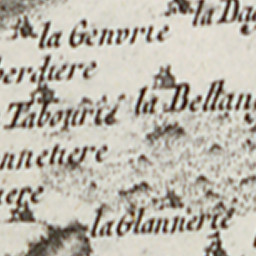 la Da
la Genvrie
erdiere
Tabourié
la Bellan
nnetiere
iere
la Glannerié